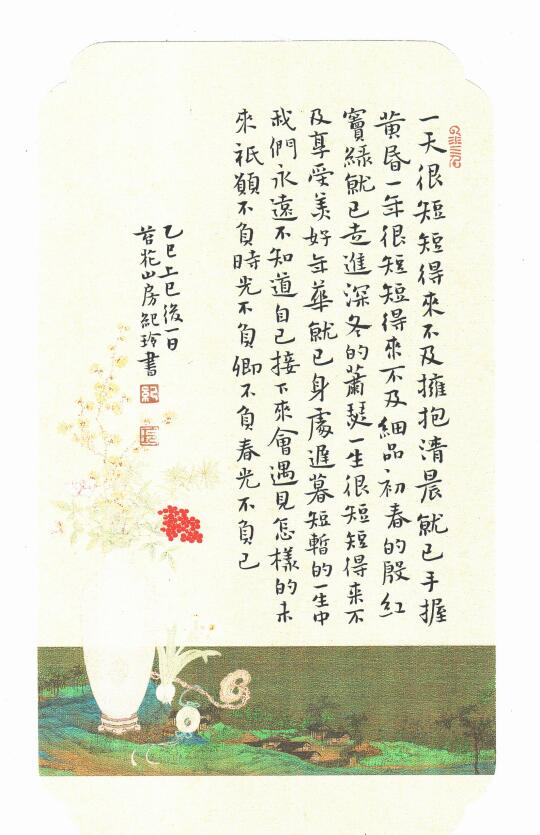 一天很短短得來不及擁抱清晨就已手握
黃昏一年很短短得來不及細品初春的殷紅
竇綠就已走進深冬的蕭瑟一生很短短得來不
及享受美好年華就已身處遲暮短暫的一生中
我們永遠不知道自己接下來會遇見怎樣的未
來祇願不負時光不負卿不負春光不負己
乙巳上巳後一日
苔花山房紀玲書
紀